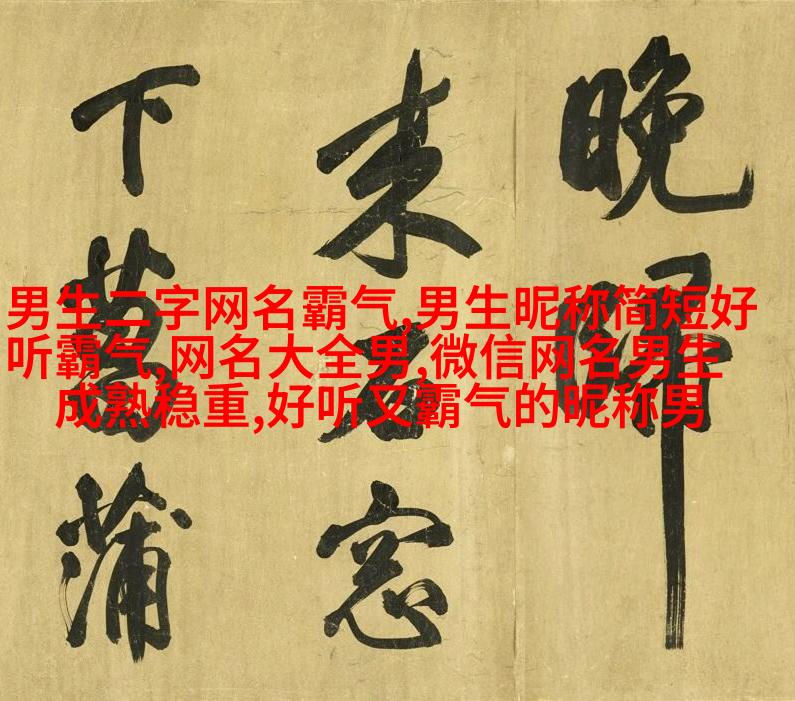 晚歸
来石窓
下菖蒲
男生二字网名霸气,男生昵称简短好
听霸气,网名大全男,微信网名男生
成熟稳重,好听又霸气的昵称男